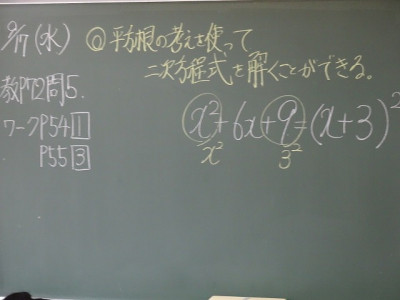 9/17(水)
◎平方根の考えを使って
二次方程式を解くことができる。
教P72問5.
ワークP54 1
P55 3
x²+6x+9=(x+3)²
x² 3²